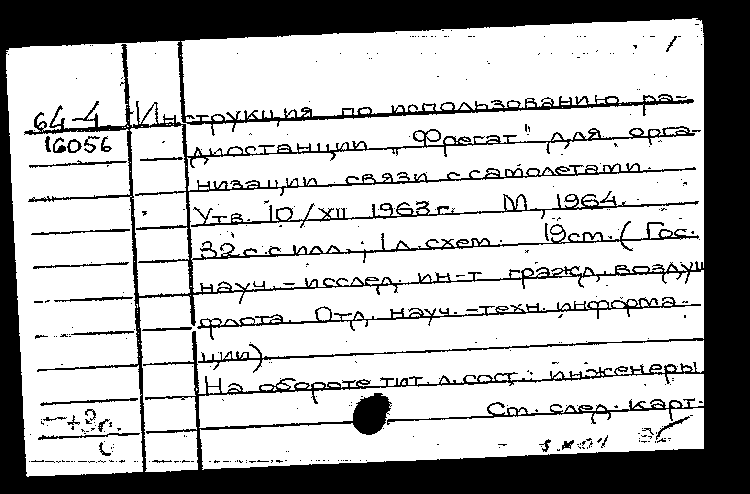 1
64-4 Инструкция по использованию ра-
16056 диостанции "Фрегат" для орга-
низации связи с самолетами.
Утв. 10/XII 1963 г. М., 1964.
32 с. с илл.; 1 л. схем. 19 см. (Гос.
науч.-исслед. ин-т гражд. воздуш
флота. Отд. науч.-техн. информа-
ции).
На обороте тит. л. сост.: инженеры
Ст. след. карт.